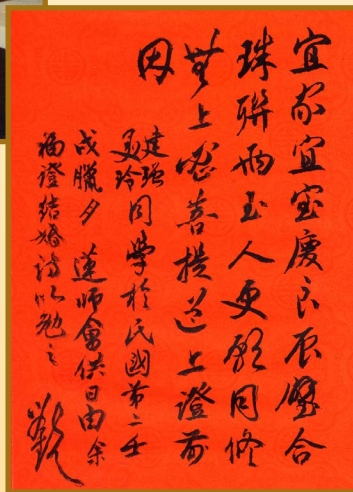 宜家宜室慶良辰璧合
珠聯兩玉人更願同修
無上密菩提道上證前
因
建強
美玲同學於民國第二壬
戌臘夕蓮師會供日由余
福證結婚詩以勉之